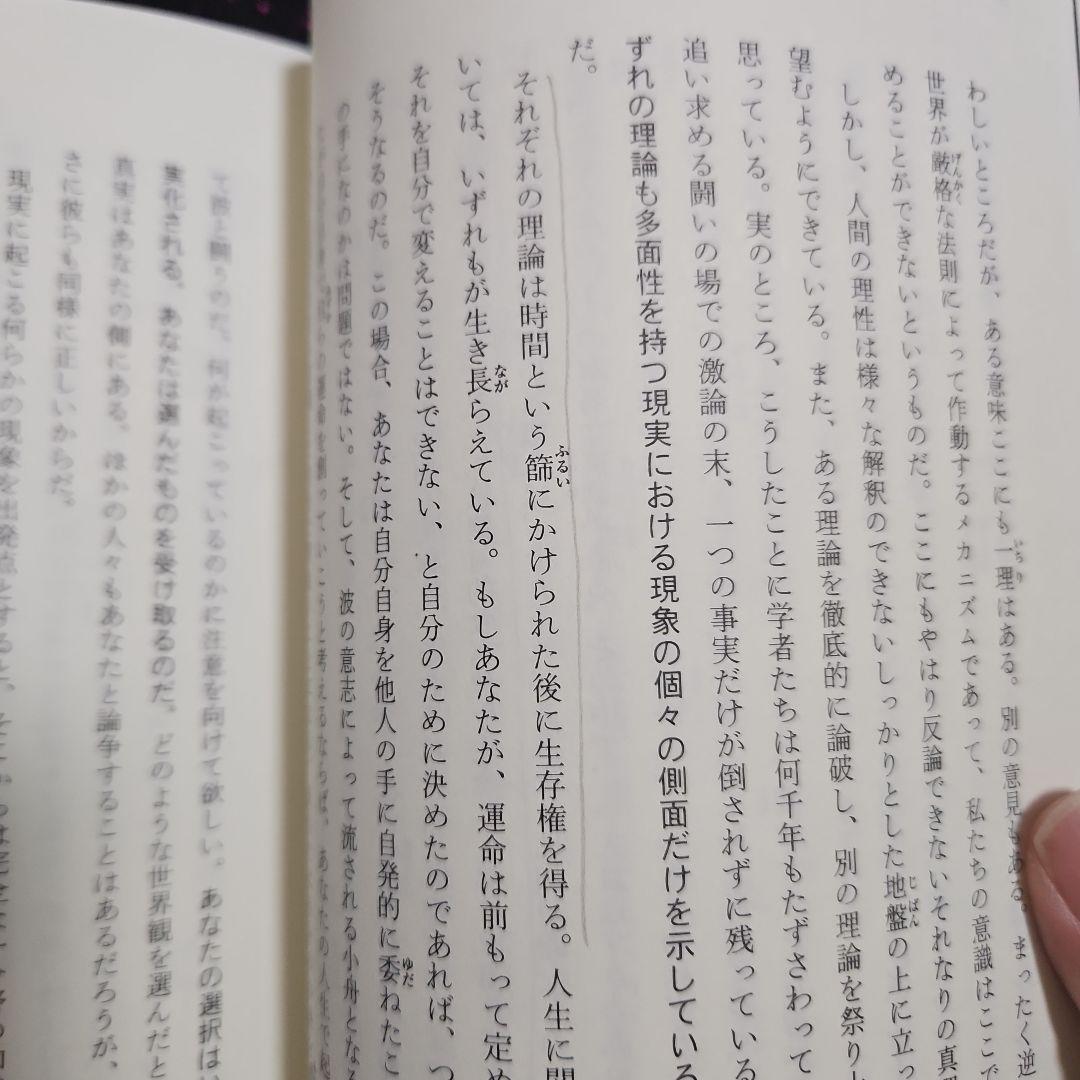 わしいところだが、ある意味ここにも一理はある。別の意見もある。まったく逆
世界が厳格な法則によって作動するメカニズムであって、私たちの意識はここで
めることができないというものだ。ここにもやはり反論できないそれなりの真
しかし、人間の理性は様々な解釈のできないしっかりとした地盤の上に立っ
望むようにできている。また、ある理論を徹底的に論破し、別の理論を祭り
思っている。実のところ、こうしたことに学者たちは何千年もたずさわって
追い求める闘いの場での激論の末、一つの事実だけが倒されずに残っている
ずれの理論も多面性を持つ現実における現象の個々の側面だけを示している
だ。
それぞれの理論は時間という篩にかけられた後に生存権を得る。人生に関
いては、いずれもが生き長らえている。もしあなたが、運命は前もって定め
それを自分で変えることはできない、と自分のために決めたのであれば、つ
そうなるのだ。この場合、あなたは自分自身を他人の手に自発的に委ねたこ
の手になのかは問題ではない。そして、波の意志によって流される小舟となる
の運命を創っていこうと考えるならば、あなたの人生で起
て皆と闘うのだ。何が起こっているのかに注意を向けて欲しい。あなたの選択は
実化される。あなたは選んだものを受け取るのだ。どのような世界観を選んだと
真実はあなたの側にある。ほかの人々もあなたと論争することはあるだろうが、
さに彼らも同様に正しいからだ。
現実に起こる何らかの現象を出発点とすると、そこからは完全な